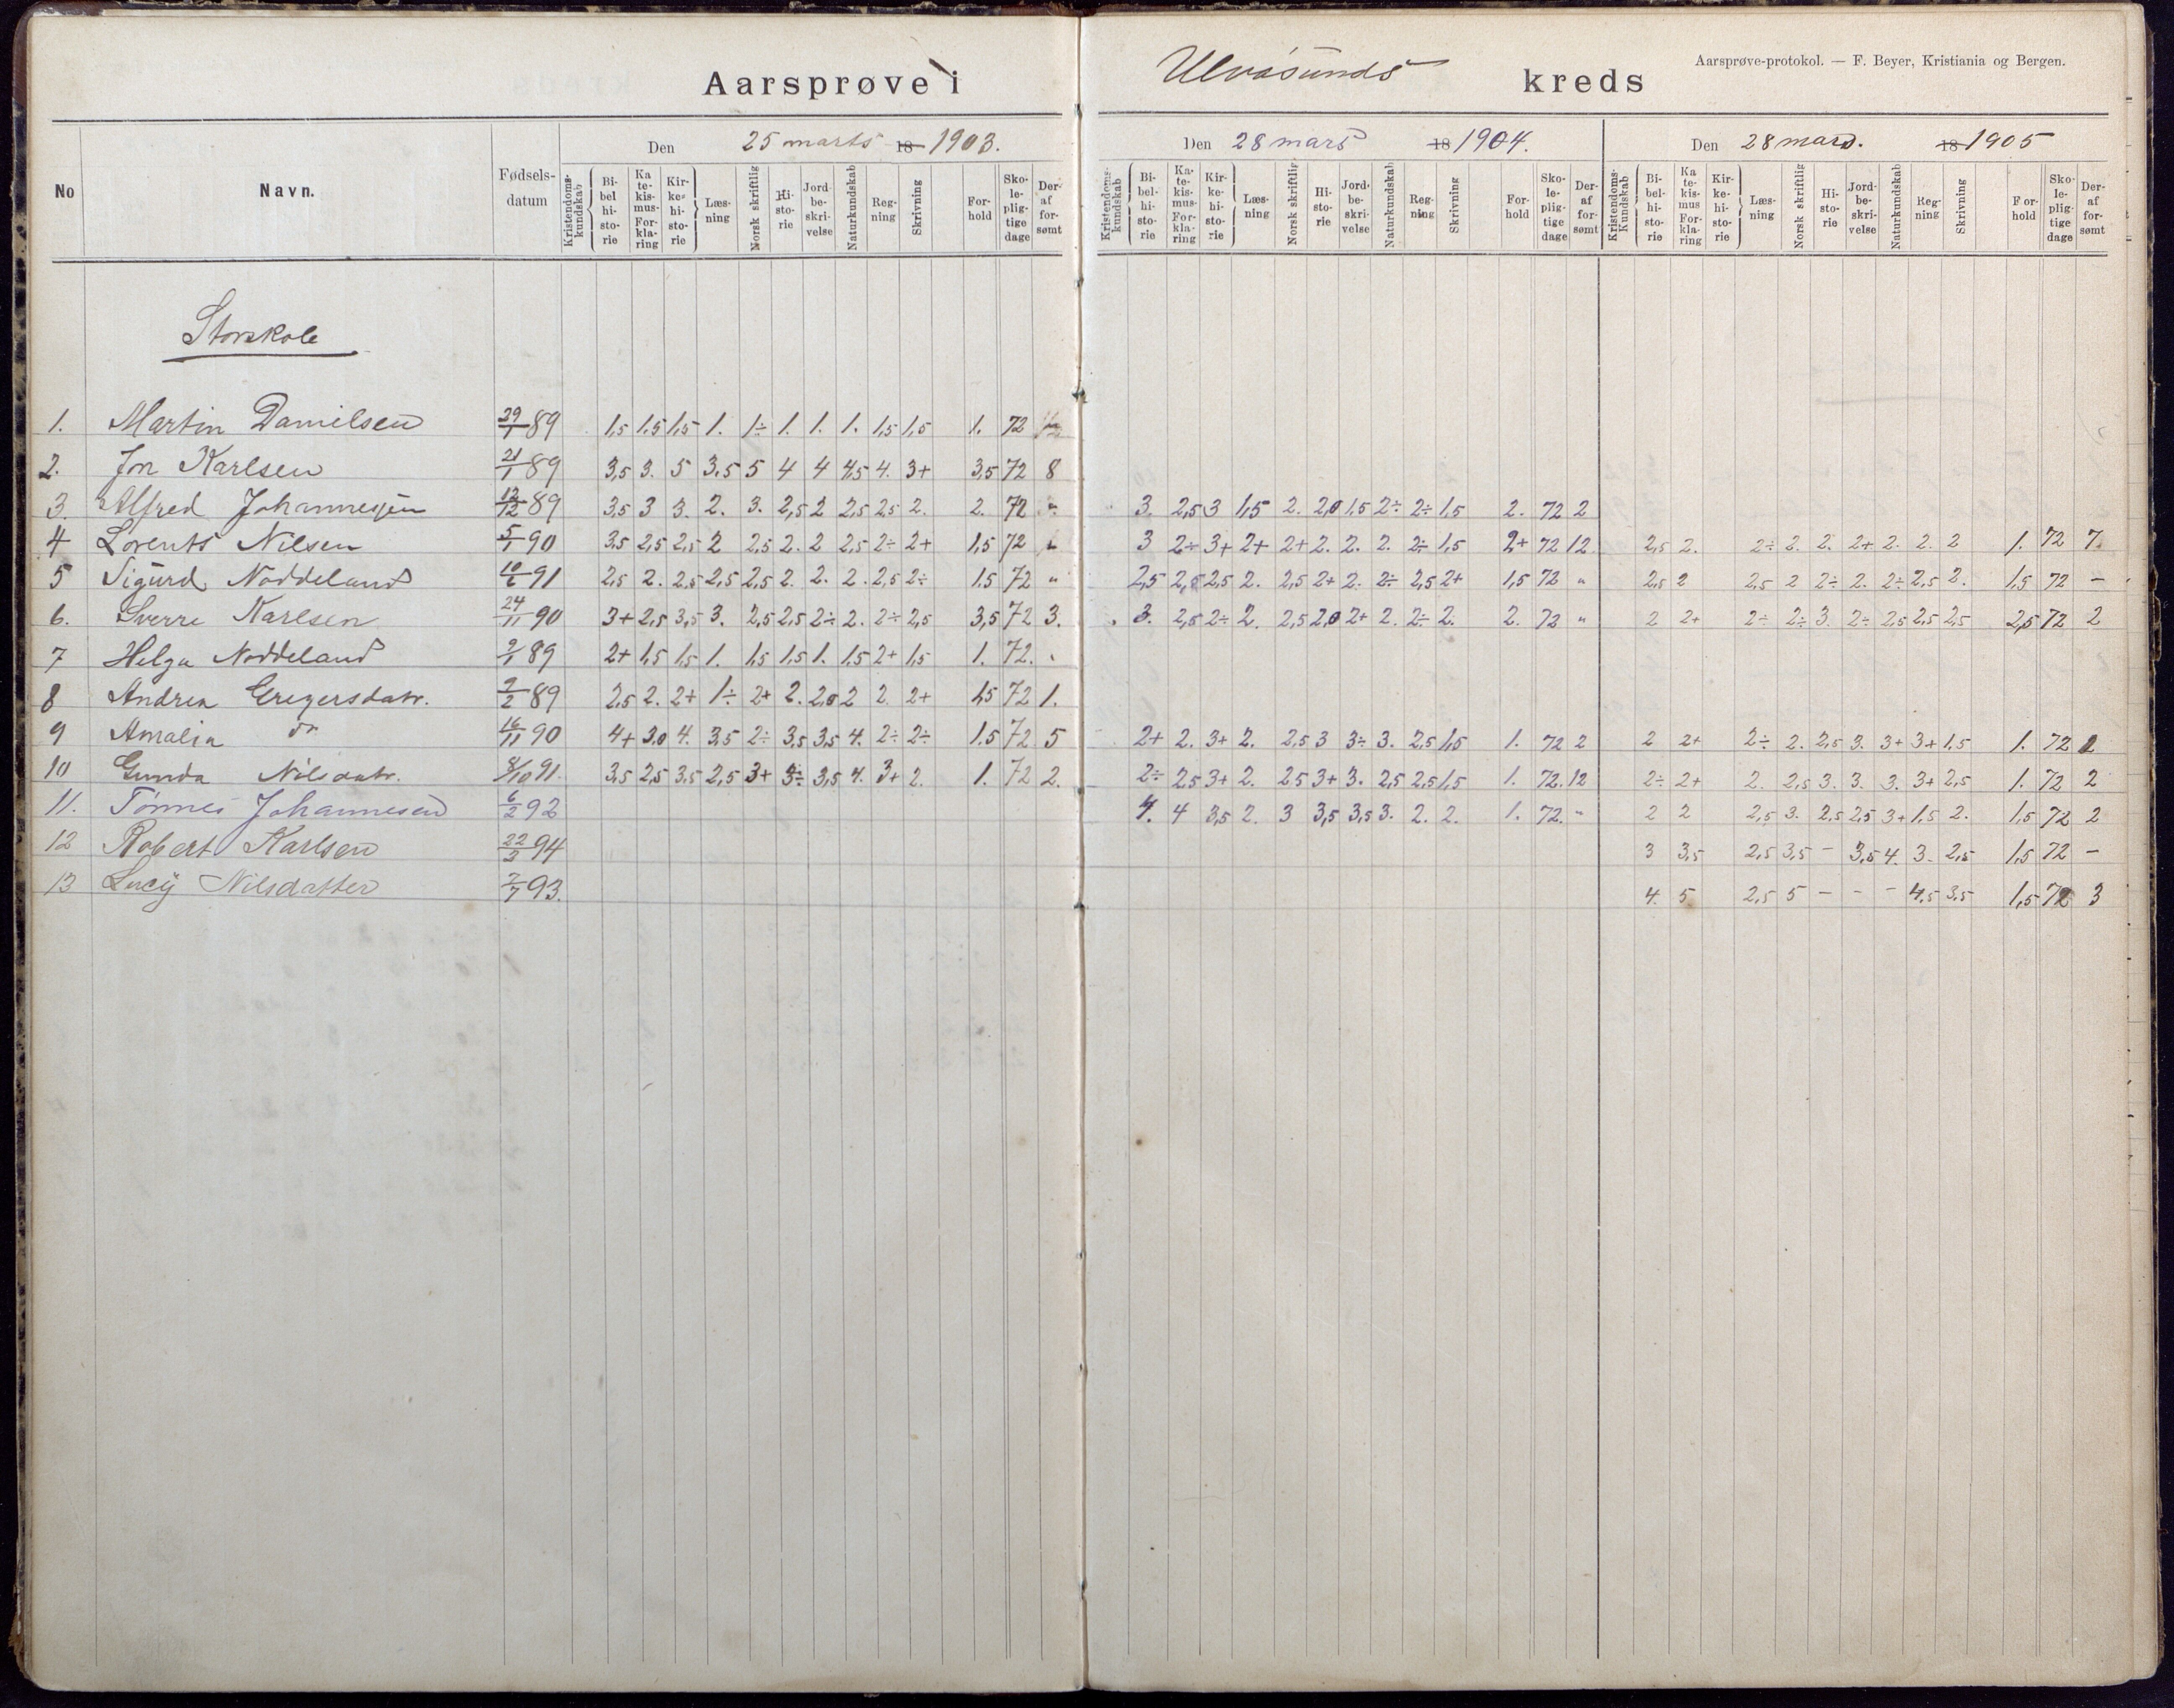 Aarsprøve i Ulvøsunds kreds
Aarsprøve-protokol. — F. Beyer, Kristiania og Bergen.
No Navn. Fødsels-datum
Den 25 marts 18 1903.
Kristendoms-kundskab Bi-bel hi-sto-rie Ka te-kis-mus- For-kla-ring Kir-ke- hi-sto-rie Læs-ning Norsk skriftlig Hi-sto-rie Jord-be-skri-velse Naturkundskab Reg-ning Skrivning For-hold Sko-le-plig-tige dage Der-af for-sømt
Den 28 mars 18 1904.
Kristendoms-kundskab Bi-bel-hi-sto-rie Ka-te-kis-mus- For-kla-ring Kir-ke-hi-sto-rie Læs-ning Norsk skriftlig Hi-sto-rie Jord-be-skri-velse Naturkundskab Reg-ning Skrivning For-hold Sko-le-plig-tige dage Der-af for-sømt
Den 28 mars. 18 1905
Kristendoms-kundskab Bi-bel-hi-sto-rie Ka te-kis-mus For-kla-ring Kir-ke-hi-sto-rie Læs-ning Norsk skriftlig Hi-sto-rie Jord-be-skri-velse Naturkundskab Reg-ning Skrivning For-hold Sko-le-plig-tige dage Der-af for-sømt
Storskole
1. Martin Danielsen 29/1 89 1,5 1.5 1,5 1. 1÷ 1. 1. 1. 1,5 1,5 1. 72
2. Jon Karlsen 21/1 89 3,5 3. 5 3.5 5 4 4 4,5 4. 3+ 3,5 72 8
3. Alfred Johannessen 12/12 89 3,5 3 3. 2. 3. 2,5 2 2,5 2,5 2. 2. 72 " 3. 2,5 3 1,5 2. 2,0 1.5 2÷ 2÷ 1,5 2. 72 2
4 Lorents Nilsen 5/1 90 3,5 2,5 2,5 2 2,5 2. 2 2,5 2÷ 2+ 1,5 72 3 2÷ 3+ 2+ 2+ 2. 2. 2. 2÷ 1,5 2+ 72 12 2,5 2. 2÷ 2. 2. 2+ 2. 2. 2 1. 72 7.
5 Sigurd Noddeland 10/6 91 2,5 2. 2,5 2,5 2,5 2. 2. 2. 2,5 2÷ 1.5 72 " 2,5 2,5 2,5 2. 2,5 2+ 2. 2÷ 2,5 2+ 1,5 72 " 2,5 2 2,5 2 2÷ 2. 2÷ 2,5 2. 1,5 72 —
6. Sverre Karlsen 24/11 90 3+ 2,5 3,5 3. 2,5 2,5 2÷ 2. 2÷ 2,5 3,5 72 3. 3. 2,5 2÷ 2. 2,5 2,0 2+ 2. 2÷ 2. 2. 72 " 2 2+ 2÷ 2÷ 3. 2÷ 2,5 2,5 2,5 2,5 72 2
7 Helga Noddeland 2/1 89 2+ 1,5 1,5 1. 1,5 1,5 1. 1,5 2+ 1,5 1. 72. "
8 Andrea Gregersdatr. 2/2 89 2,5 2. 2+ 1÷ 2+ 2. 2,0 2 2. 2+ 1,5 72 1.
9 Amalia do 16/11 90 4+ 3,0 4. 3,5 2÷ 3,5 3,5 4. 2÷ 2÷ 1.5 72 5 2+ 2. 3+ 2. 2,5 3 3÷ 3. 2,5 1,5 1. 72 2 2 2+ 2÷ 2. 2,5 3. 3+ 3+ 1,5 1. 72 2
10 Gunda Nilsdatr. 8/10 91. 3,5 2,5 3,5 2,5 3+ 3÷ 3,5 4. 3+ 2. 1. 72 2. 2÷ 2,5 3+ 2. 2,5 3+ 3. 2,5 2,5 1,5 1. 72. 12 2÷ 2+ 2. 2,5 3. 3. 3. 3+ 2,5 1. 72 2
11. Tønnes Johannesen 6/2 92 4. 4 3,5 2. 3 3,5 3,5 3. 2. 2. 1. 72. " 2 2 2,5 3. 2,5 2,5 3+ 1,5 2. 1,5 72 2
12 Robert Karlsen 22/2 94 3 3,5 2,5 3,5 — 3,5 4. 3. 2,5 1,5 72 —
13 Lucÿ Nilsdatter 7/7 93. 4. 5 2,5 5 — — — 4,5 3,5 1,5 72 3